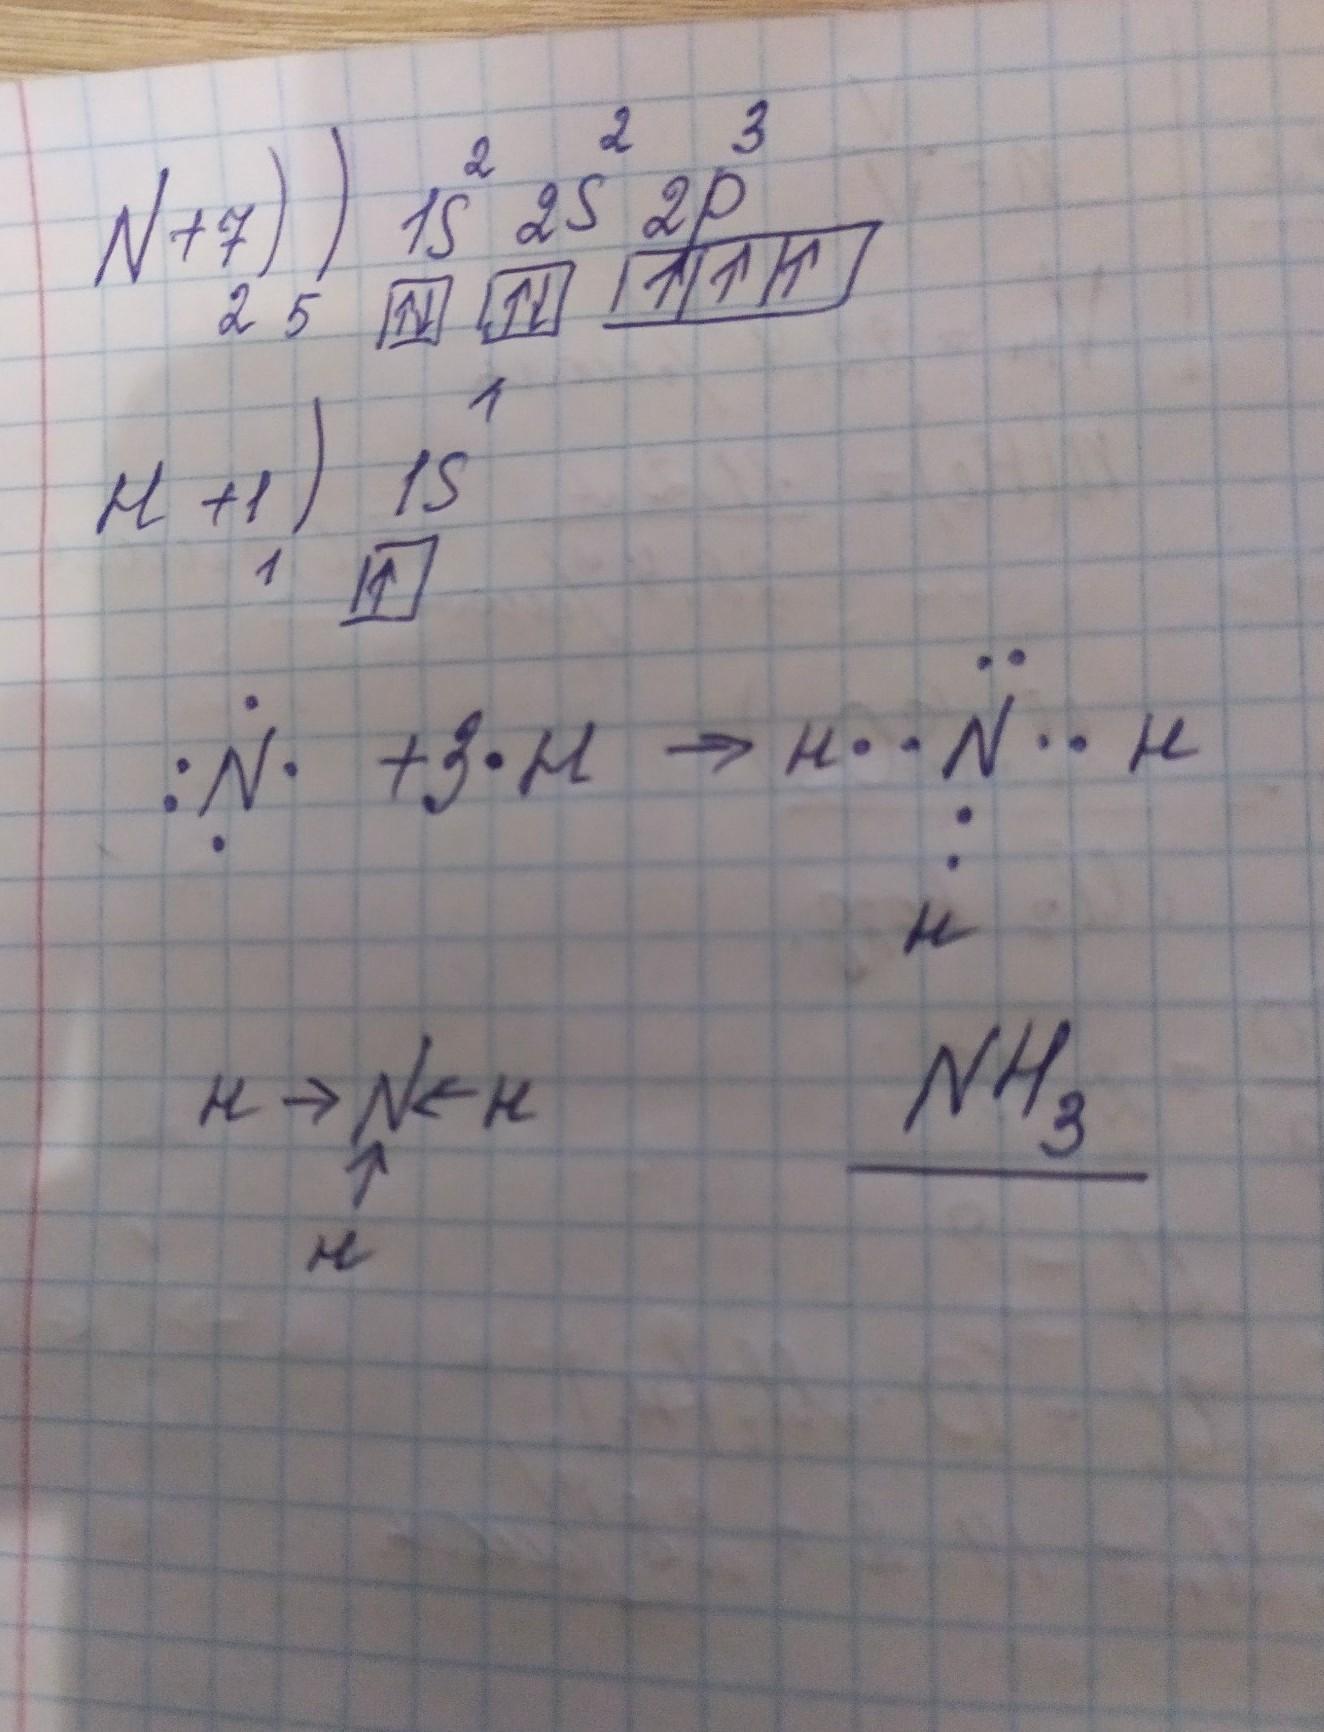 N +7 ) ) 1s² 2s² 2p³
2 5 ↑↓ ↑↓ ↑ ↑ ↑
H +1 ) 1s¹
1 ↑
:Ṅ· + 3·H → H··N̈··H
·
:
H
H → N ← H
↑
H
NH₃